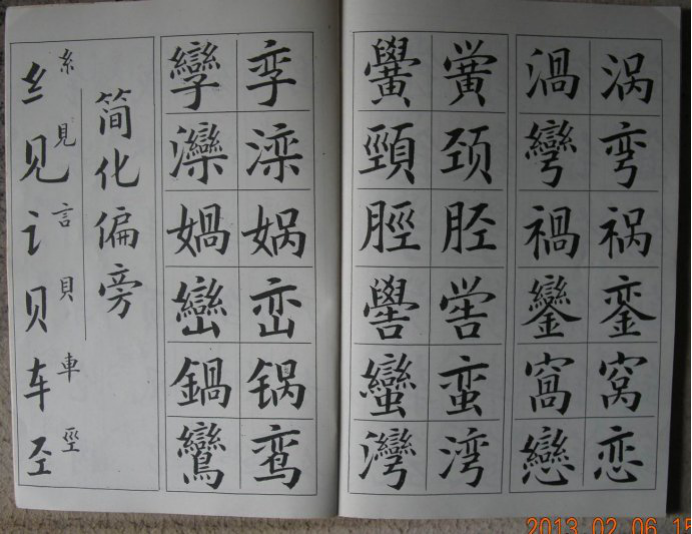 涡弯祸銮窝恋
渦彎禍鑾窩戀
黉颈胫喾蛮湾
黌頸脛嚳蠻灣
孪滦娲峦锅鸾
孿灤媧巒鍋鸞
简化偏旁
糸見言貝車巠
纟见讠贝车𢀖
2013.02.06 15